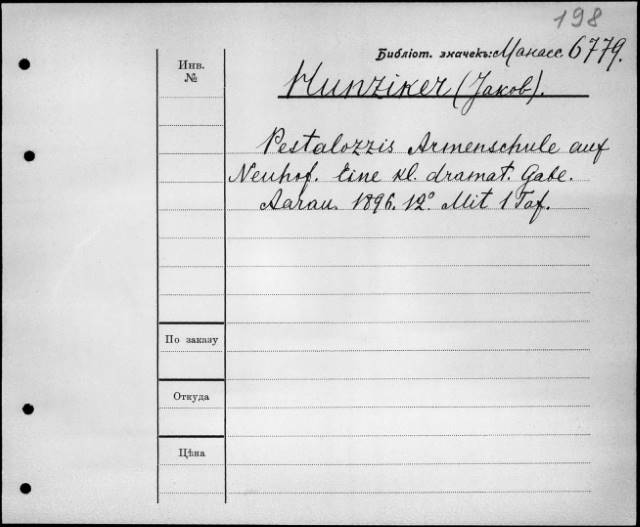 198
Библіот. значекъ: Манасс 6779.
Инв.
№
Hunziker (Jakob).
Pestalozzis Armenschule auf
Neuhof. Eine kl. dramat. Gabe.
Aarau. 1896. 12° Mit 1 Taf.
По заказу
Откуда
Цѣна